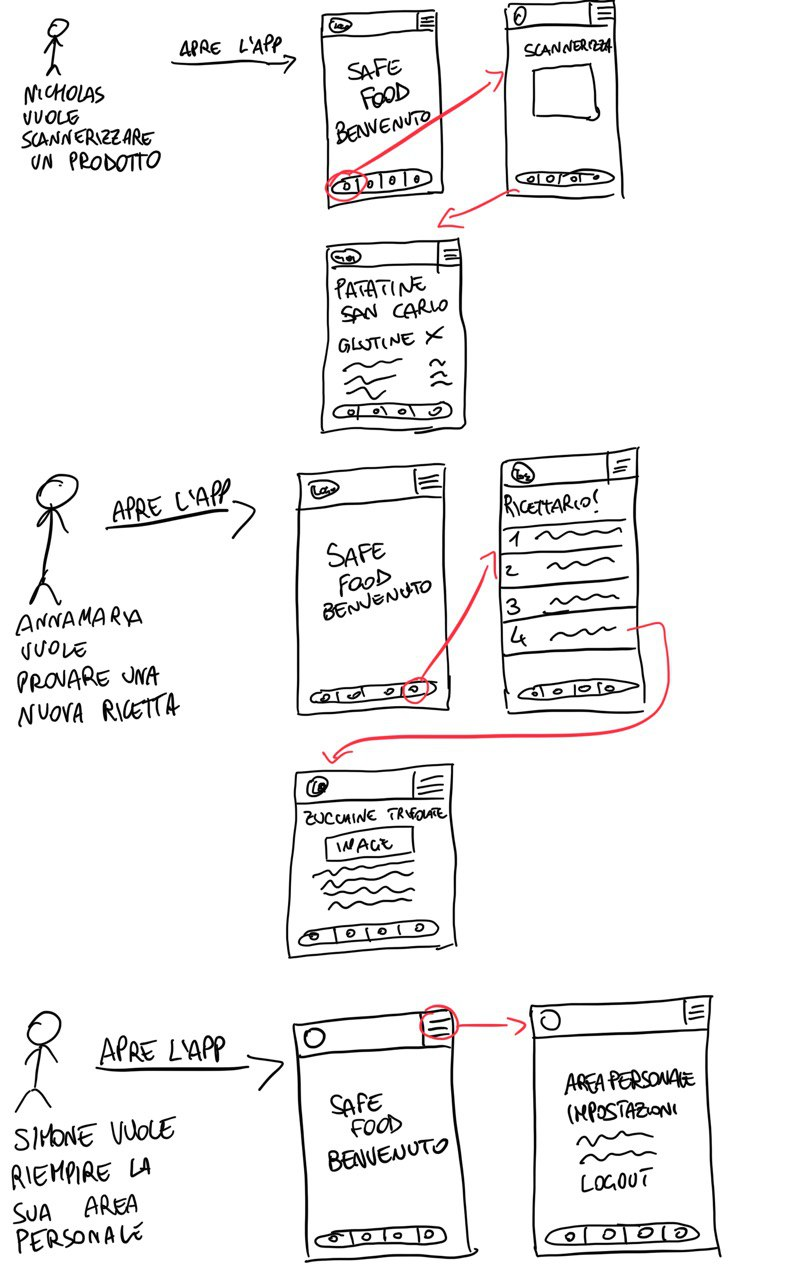 NICHOLAS
VUOLE
SCANNERIZZARE
UN PRODOTTO
APRE L'APP
SAFE
FOOD
BENVENUTO
SCANNERIZZA
PATATINE
SAN CARLO
GLUTINE X
ANNAMARIA
VUOLE
PROVARE UNA
NUOVA RICETTA
APRE L'APP
SAFE
FOOD
BENVENUTO
RICETTARIO!
1
2
3
4
ZUCCHINE TRIFOLATE
IMAGE
SIMONE VUOLE
RIEMPIRE LA
SUA AREA
PERSONALE
APRE L'APP
SAFE
FOOD
BENVENUTO
AREA PERSONALE
IMPOSTAZIONI
LOGOUT